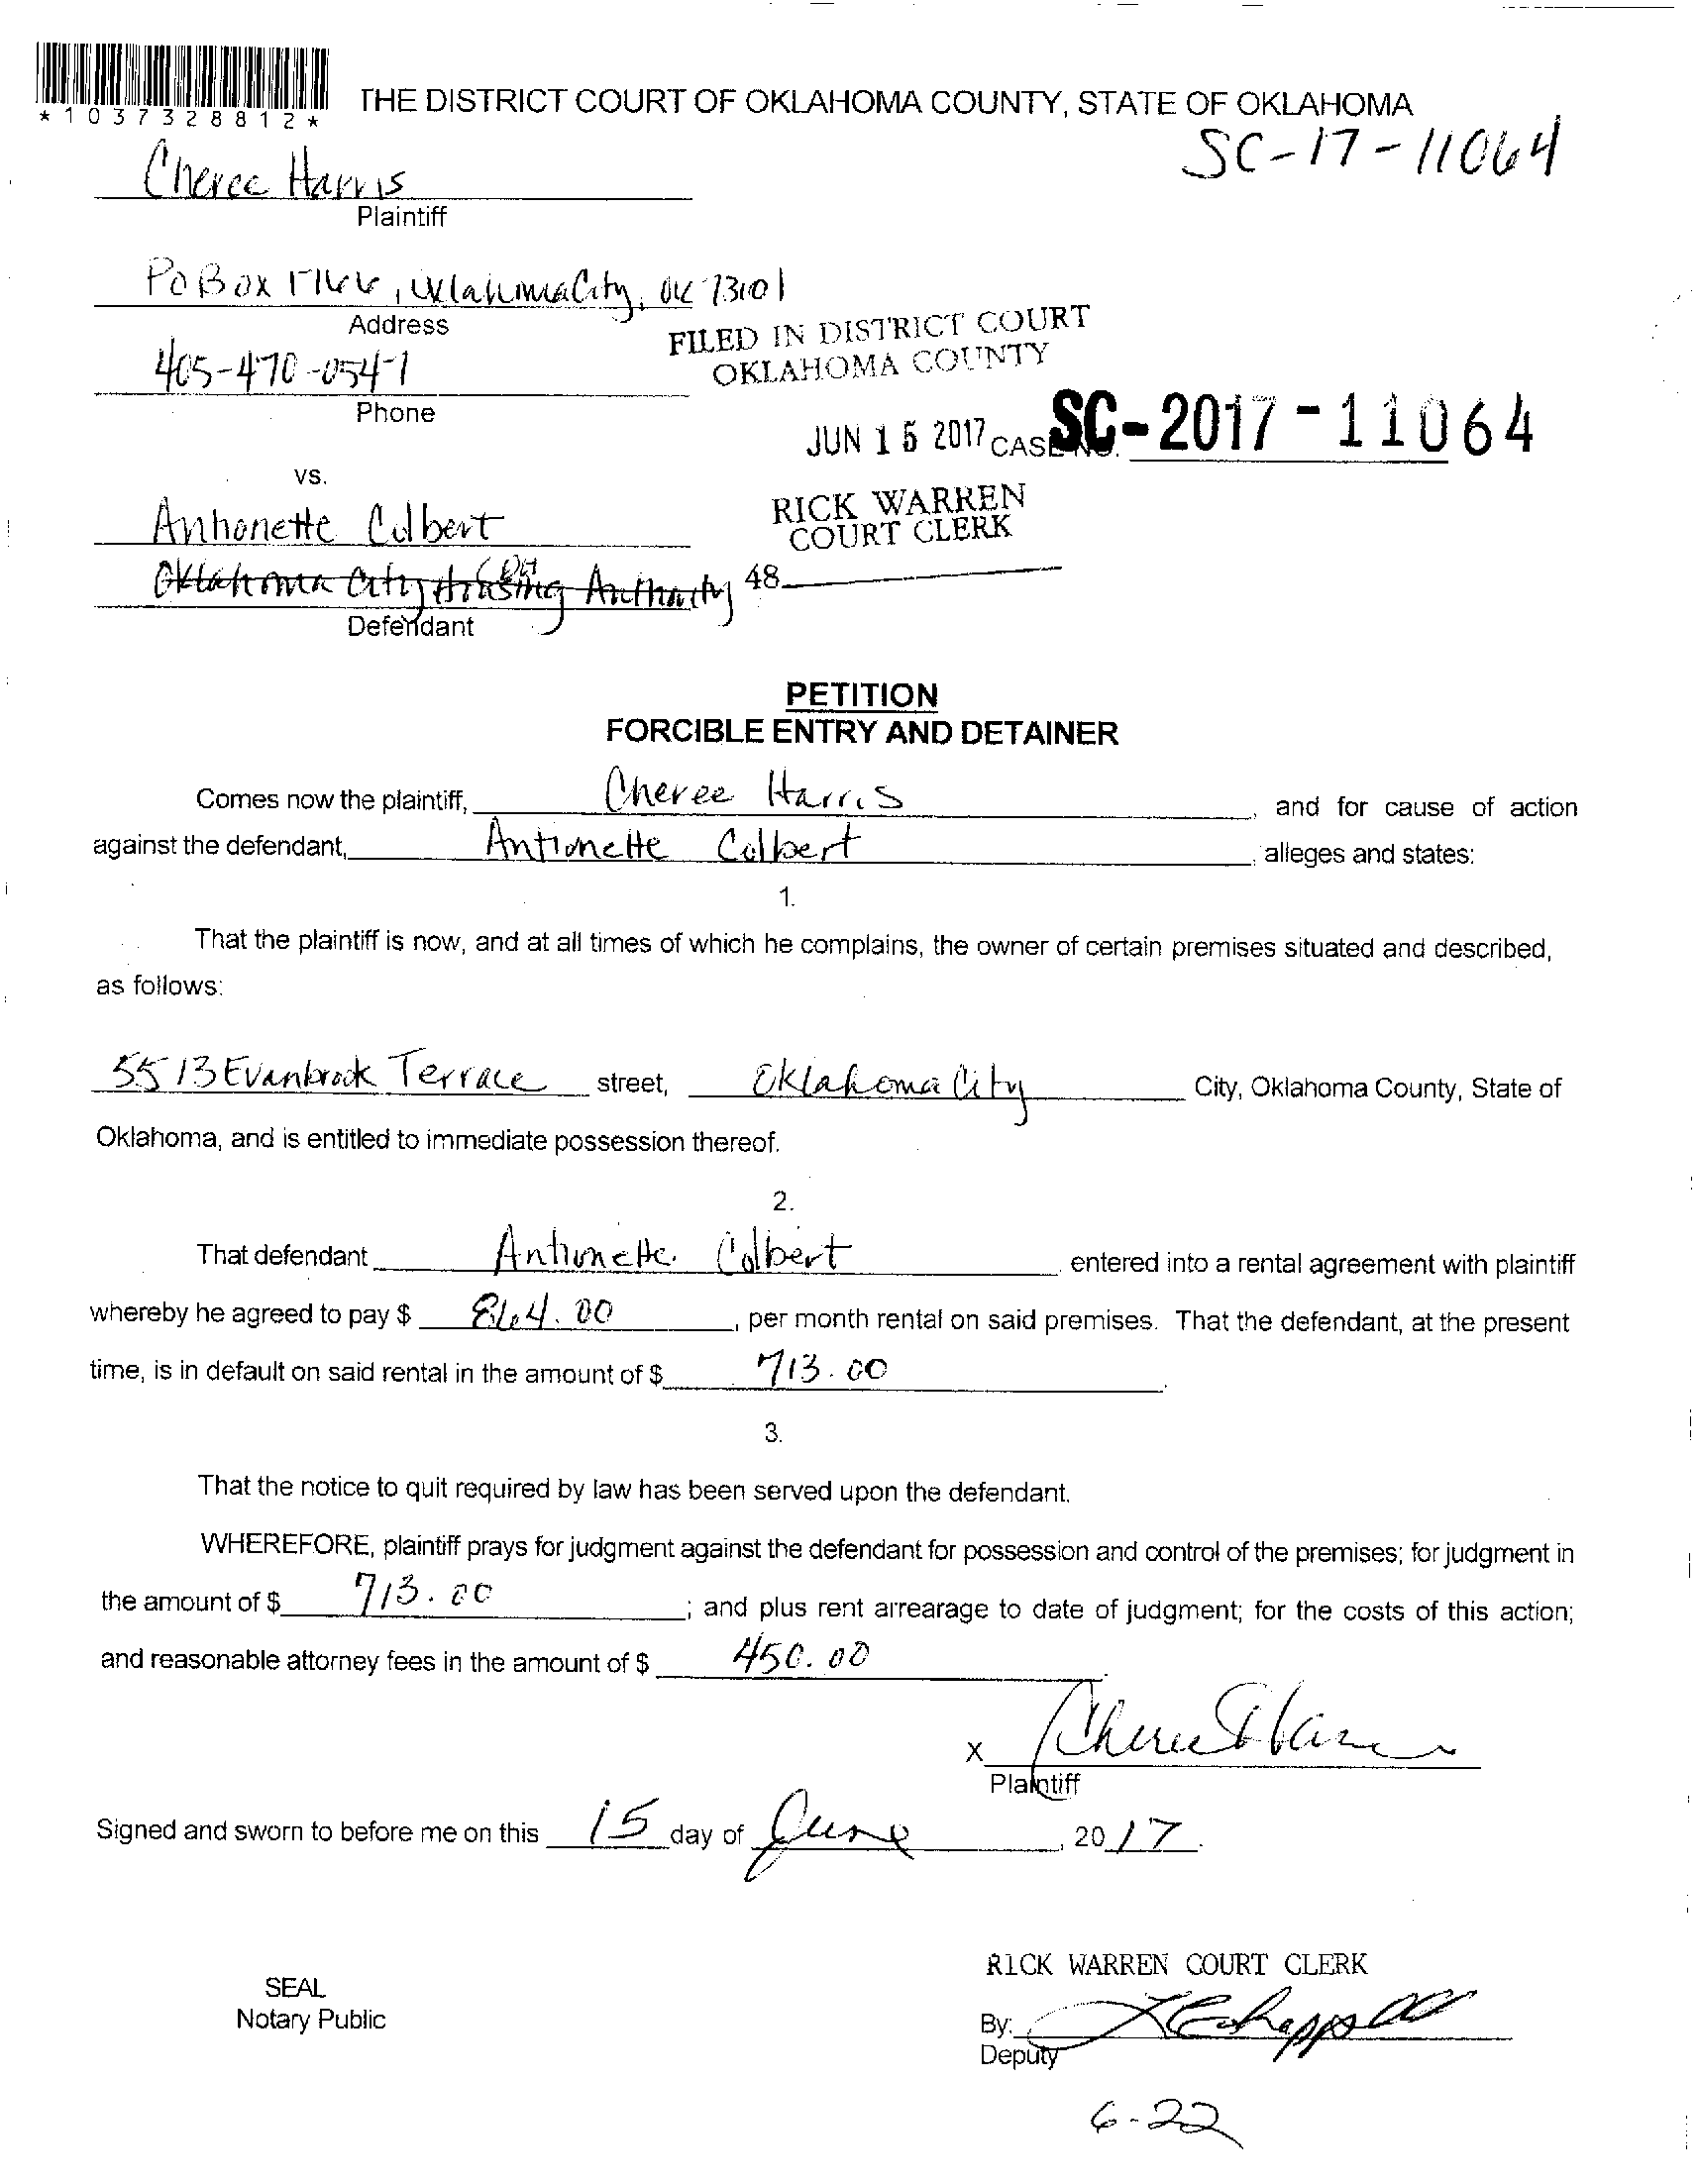 *1037328812*
THE DISTRICT COURT OF OKLAHOMA COUNTY, STATE OF OKLAHOMA
SC-17-11064
Cheree Harris
Plaintiff
PO Box , Oklahoma City, OK 73101
Address
FILED IN DISTRICT COURT
OKLAHOMA COUNTY
405-470-0547
Phone
JUN 15 2017 CASE NO. SC-2017-11064
vs.
RICK WARREN
COURT CLERK
Anhonette Colbert
Oklahoma City Housing Authority
48
Defendant
PETITION
FORCIBLE ENTRY AND DETAINER
Comes now the plaintiff, Cheree Harris, and for cause of action
against the defendant, Antionette Colbert, alleges and states:
1.
That the plaintiff is now, and at all times of which he complains, the owner of certain premises situated and described,
as follows:
5513 Evanbrook Terrace street, Oklahoma City City, Oklahoma County, State of
Oklahoma, and is entitled to immediate possession thereof.
2.
That defendant Antionette Colbert entered into a rental agreement with plaintiff
whereby he agreed to pay $ 864.00, per month rental on said premises. That the defendant, at the present
time, is in default on said rental in the amount of $ 713.00.
3.
That the notice to quit required by law has been served upon the defendant.
WHEREFORE, plaintiff prays for judgment against the defendant for possession and control of the premises; for judgment in
the amount of $ 713.00; and plus rent arrearage to date of judgment; for the costs of this action;
and reasonable attorney fees in the amount of $ 450.00.
X
Plaintiff
Signed and sworn to before me on this 15 day of June, 2017.
RICK WARREN COURT CLERK
SEAL
Notary Public
By:
Deputy
6-22